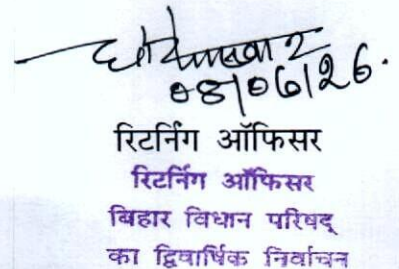 08/06/26.
रिटर्निंग ऑफिसर
रिटर्निंग ऑफिसर
बिहार विधान परिषद्
का द्विवार्षिक निर्वाचन